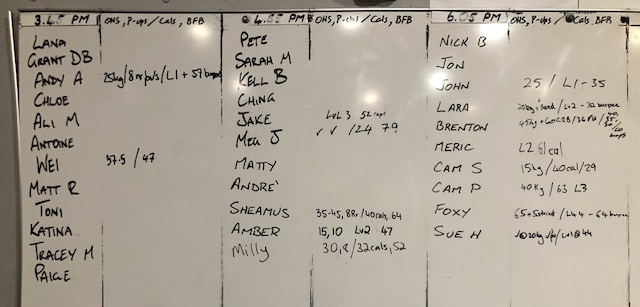 3.45 PM OHS, P-ups/Cals, BFB
LANA
GRANT DB
ANDY A 25kg/8 r
CHLOE
ALI M
ANTOINE
WEI 37.5 / 47
MATT R
TONI
KATINA
TRACEY M
PAIGE
4.55 PM OHS, P-ups/Cals, BFB
PETE
SARAH M
KELL B
CHING
JAKE LVL 3 52 reps
MEG J ✓ ✓ /24 79
MATTY
ANDRE'
SHEAMUS 35-45, 8R/40cals, 64
AMBER 15,10 Lv2 47
Milly 30, 8/32cals, 52
6.05 PM OHS, P-ups/Cals, BFB
NICK B
JON
JOHN 25 / L1-35
LARA 20kg / Lv2 - 32 burpee
BRENTON 45kg
MERIC L2 cal
CAM S 15kg/40cal/29
CAM P 40kg / 63 L3
FOXY 65+
SUE H